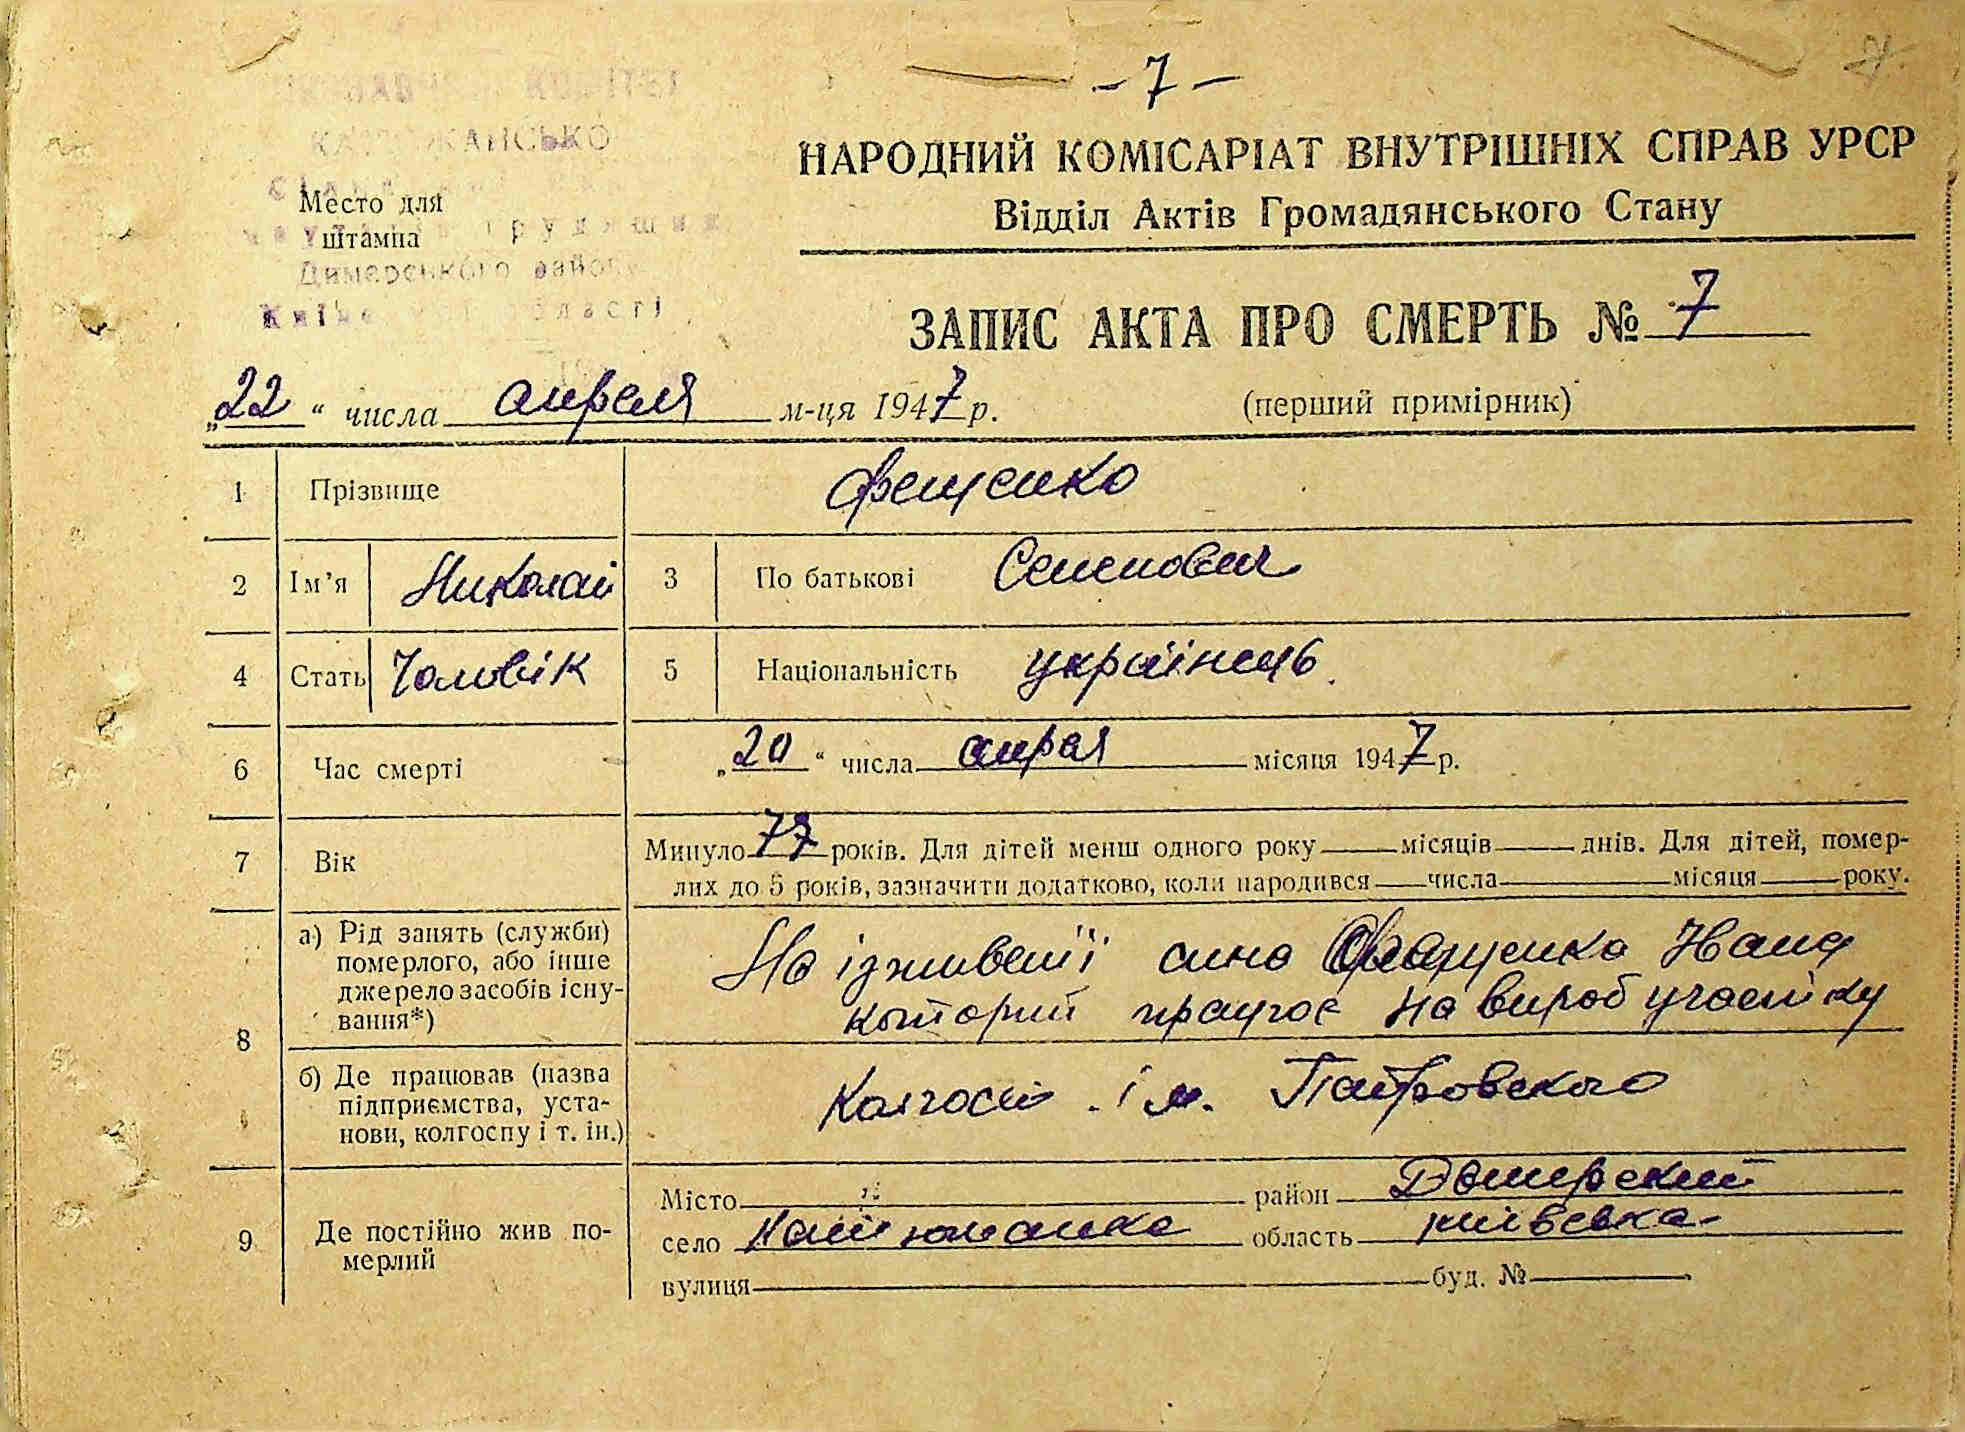 - 7 -
НАРОДНИЙ КОМІСАРІАТ ВНУТРІШНІХ СПРАВ УРСР
Відділ Актів Громадянського Стану
Место для
штампа
Димерського району
Київської області
ЗАПИС АКТА ПРО СМЕРТЬ № 7
„22“ числа апреля м-ця 1947 р.
(перший примірник)
1 Прізвище Фещенко
2 Ім’я Николай 3 По батькові Семенович
4 Стать Чоловік 5 Національність українець
6 Час смерті „20“ числа апреля місяця 1947 р.
7 Вік Минуло 77 років. Для дітей менш одного року — місяців — днів. Для дітей, помер-
лих до 5 років, зазначити додатково, коли народився — числа — місяця — року.
8 а) Рід занять (служби)
померлого, або інше
джерело засобів існу-
вання*)
На іждивенії сина Фещенка Ивана
которий працює на вироб участку
б) Де працював (назва
підприємства, уста-
нови, колгоспу і т. ін.)
Колгосп ім. Петровского
9 Де постійно жив по-
мерлий
Місто район Димерский
село Катюжанка область київська
вулиця буд. №